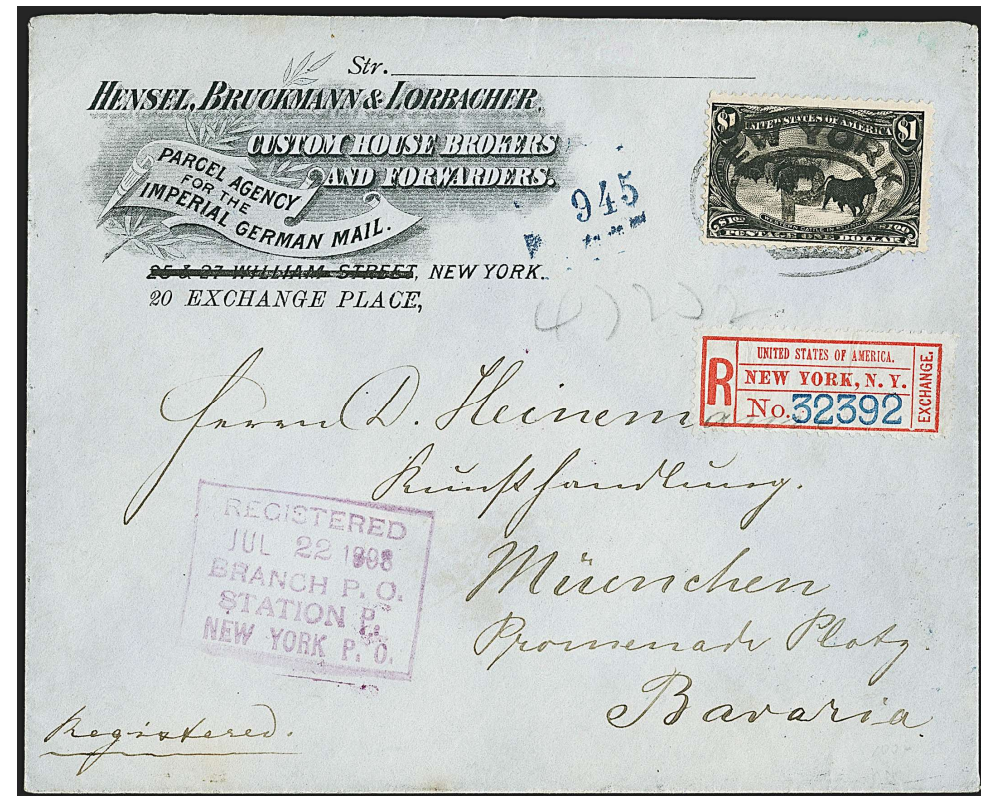 Str.
HENSEL, BRUCKMANN & LORBACHER,
CUSTOM HOUSE BROKERS
AND FORWARDERS.
PARCEL AGENCY
FOR THE
IMPERIAL GERMAN MAIL.
25 & 27 WILLIAM STREET, NEW YORK.
20 EXCHANGE PLACE,
945
$1 UNITED STATES OF AMERICA $1
NEW YORK
P
$1.00 $1.00
POSTAGE ONE DOLLAR
R
UNITED STATES OF AMERICA.
NEW YORK, N. Y.
No. 32392
EXCHANGE.
Herrn D. Heinemann
Kunsthandlung.
Müenchen
Promenade Platz.
Bavaria
REGISTERED
JUL 22 1898
BRANCH P. O.
STATION P.
NEW YORK P. O.
Registered.